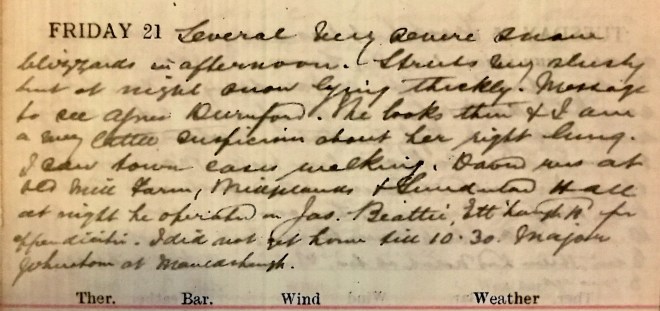 FRIDAY 21 Several very severe snow
blizzards in afternoon. Streets very slushy
but at night snow lying thickly. Message
to see Agnes Durnford. She looks thin & I am
a very little suspicious about her right lung.
I saw town cases walking. David was at
Old Mill Farm, & Hall
at night he operated on Jas. Beattie, for
appendicitis. I did not get home till 10.30. Major
Johnstone at
Ther. Bar. Wind Weather